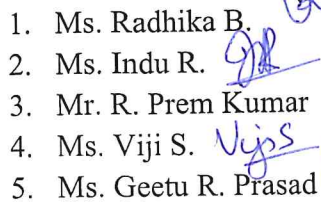 1. Ms. Radhika B.
2. Ms. Indu R.
3. Mr. R. Prem Kumar
4. Ms. Viji S. VijiS
5. Ms. Geetu R. Prasad